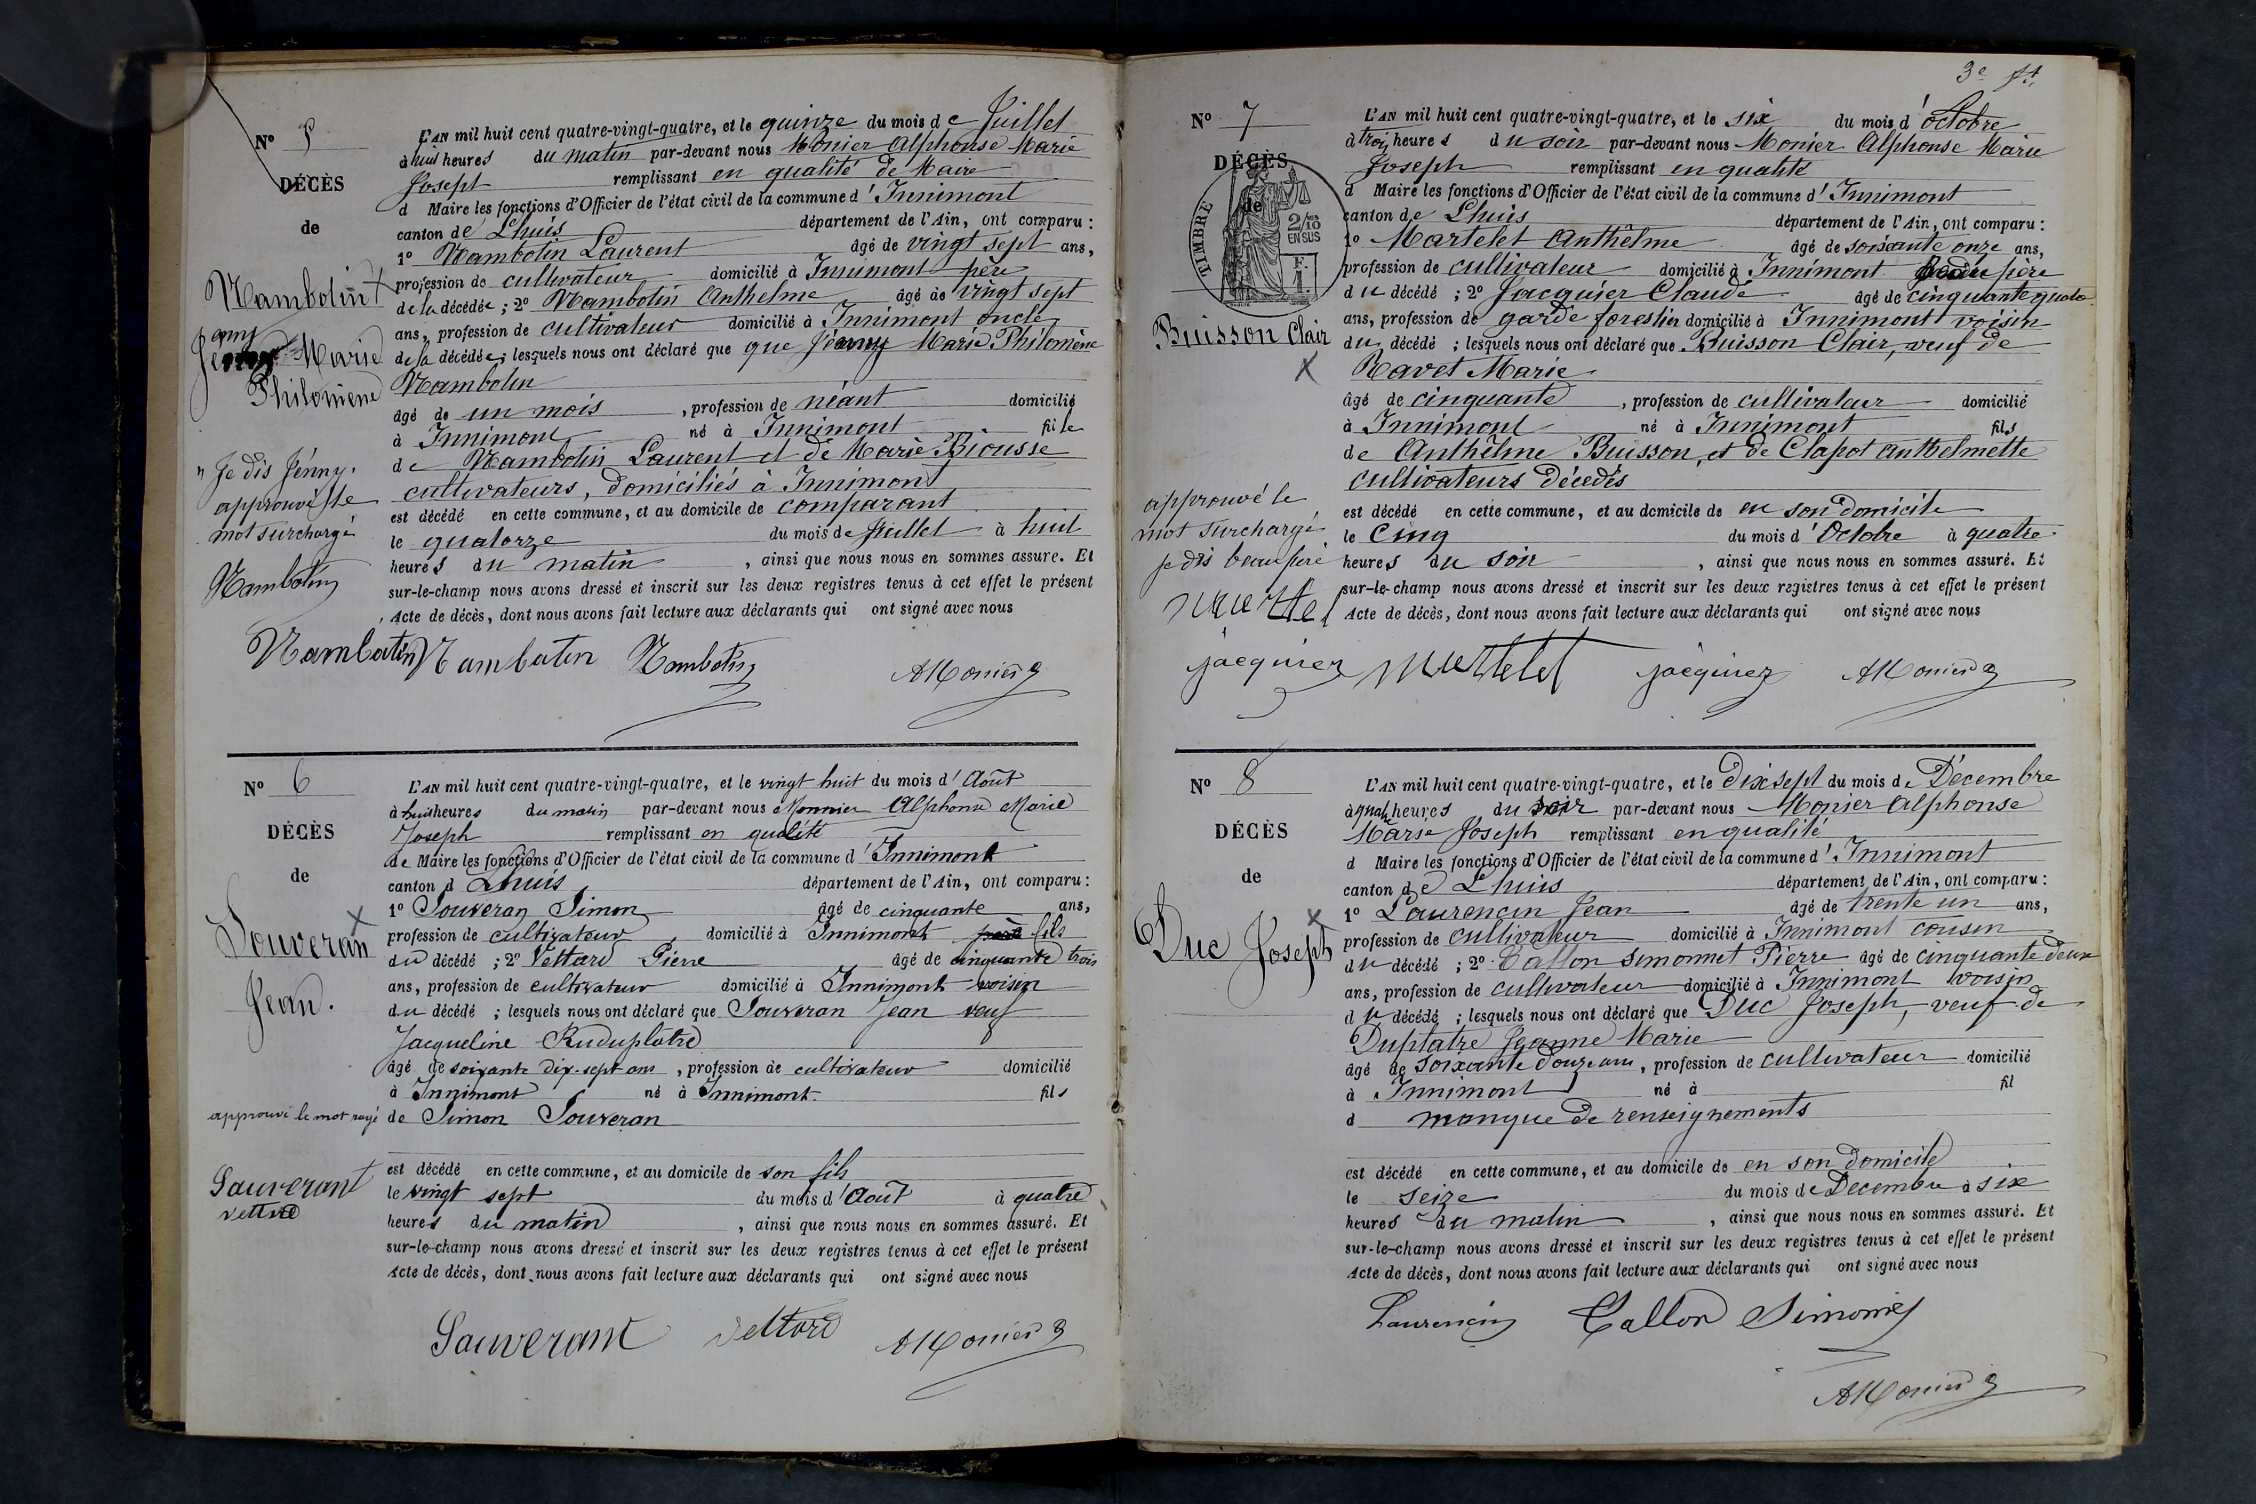 Nº 5
DÉCÈS
de
Nambotin
Jenny
Marie
Philomène
"Je dis Jénny.
approuvé le
mot surchargé
Nambotin
L'AN mil huit cent quatre-vingt-quatre, et le quinze du mois de Juillet
à huit heures du matin par-devant nous Monier Alphonse Marie
Joseph remplissant en qualité de Maire
d Maire les fonctions d'Officier de l'état civil de la commune d'Innimont
canton de Lhuis département de l'Ain, ont comparu :
1º Nambotin Laurent âgé de vingt sept ans,
profession de cultivateur domicilié à Innimont père
de la décédée ; 2º Nambotin Anthelme âgé de vingt sept
ans, profession de cultivateur domicilié à Innimont oncle
de la décédée ; lesquels nous ont déclaré que que Jénny Marie Philomène
Nambotin
âgé de un mois , profession de néant domicilié
à Innimont né à Innimont fille
de Nambotin Laurent et de Marie Biousse
cultivateurs, domiciliés à Innimont
est décédé en cette commune, et au domicile de comparant
le quatorze du mois de Juillet à huit
heures du matin , ainsi que nous nous en sommes assuré. Et
sur-le-champ nous avons dressé et inscrit sur les deux registres tenus à cet effet le présent
Acte de décès, dont nous avons fait lecture aux déclarants qui ont signé avec nous
Nambotin Nambotin Nambotin AMonier
Nº 6
DÉCÈS
de
Souveran
Jean.
approuvé le mot rayé
Sauverant
vettard
L'AN mil huit cent quatre-vingt-quatre, et le vingt huit du mois d'Août
à huit heures du matin par-devant nous Monnier Alphonse Marie
Joseph remplissant en qualité
de Maire les fonctions d'Officier de l'état civil de la commune d'Innimont
canton d Lhuis département de l'Ain, ont comparu :
1º Souveran Simon âgé de cinquante ans,
profession de cultivateur domicilié à Innimont père fils
du décédé ; 2º Vettard Pierre âgé de cinquante trois
ans, profession de cultivateur domicilié à Innimont voisin
du décédé ; lesquels nous ont déclaré que Souveran Jean veuf
Jacqueline Ruduplatre
âgé de soixante dix-sept ans , profession de cultivateur domicilié
à Innimont né à Innimont fils
de Simon Souveran
est décédé en cette commune, et au domicile de son fils
le vingt sept du mois d'Août à quatre
heures du matin , ainsi que nous nous en sommes assuré. Et
sur-le-champ nous avons dressé et inscrit sur les deux registres tenus à cet effet le présent
Acte de décès, dont nous avons fait lecture aux déclarants qui ont signé avec nous
Sauverant vettard AMonier
3e ft
Nº 7
DÉCÈS
de
TIMBRE
2/10 EN SUS
F. 1.
Buisson Clair
approuvé le
mot surchargé
je dis beau père
martel
jacquier
L'AN mil huit cent quatre-vingt-quatre, et le six du mois d'Octobre
à trois heures du soir par-devant nous Monier Alphonse Marie
Joseph remplissant en qualité
d Maire les fonctions d'Officier de l'état civil de la commune d'Innimont
canton de Lhuis département de l'Ain, ont comparu :
1º Martelet Anthelme âgé de soixante onze ans,
profession de cultivateur domicilié à Innimont beau père
du décédé ; 2º Jacquier Claude âgé de cinquante quatre
ans, profession de garde forestier domicilié à Innimont voisin
du décédé ; lesquels nous ont déclaré que Buisson Clair, veuf de
Ravet Marie
âgé de cinquante , profession de cultivateur domicilié
à Innimont né à Innimont fils
de Anthelme Buisson, et de Clapot Anthelmette
cultivateurs décédés
est décédé en cette commune, et au domicile de en son domicile
le cinq du mois d'Octobre à quatre
heures du soir , ainsi que nous nous en sommes assuré. Et
sur-le-champ nous avons dressé et inscrit sur les deux registres tenus à cet effet le présent
Acte de décès, dont nous avons fait lecture aux déclarants qui ont signé avec nous
martelet jacquier AMonier
Nº 8
DÉCÈS
de
Duc Joseph
L'AN mil huit cent quatre-vingt-quatre, et le Dix sept du mois de Décembre
à quatre heures du soir par-devant nous Monier Alphonse
Marie Joseph remplissant en qualité
d Maire les fonctions d'Officier de l'état civil de la commune d'Innimont
canton de Lhuis département de l'Ain, ont comparu :
1º Laurencin Jean âgé de trente un ans,
profession de cultivateur domicilié à Innimont cousin
du décédé ; 2º Callon Simonnet Pierre âgé de cinquante deux
ans, profession de cultivateur domicilié à Innimont voisin
du décédé ; lesquels nous ont déclaré que Duc Joseph, veuf de
Duplatre Jeanne Marie
âgé de soixante douze ans , profession de cultivateur domicilié
à Innimont né à fil
d manque de renseignements
est décédé en cette commune, et au domicile de en son domicile
le seize du mois de Decembre à six
heures du matin , ainsi que nous nous en sommes assuré. Et
sur-le-champ nous avons dressé et inscrit sur les deux registres tenus à cet effet le présent
Acte de décès, dont nous avons fait lecture aux déclarants qui ont signé avec nous
Laurencin Callon Simonet
AMonier